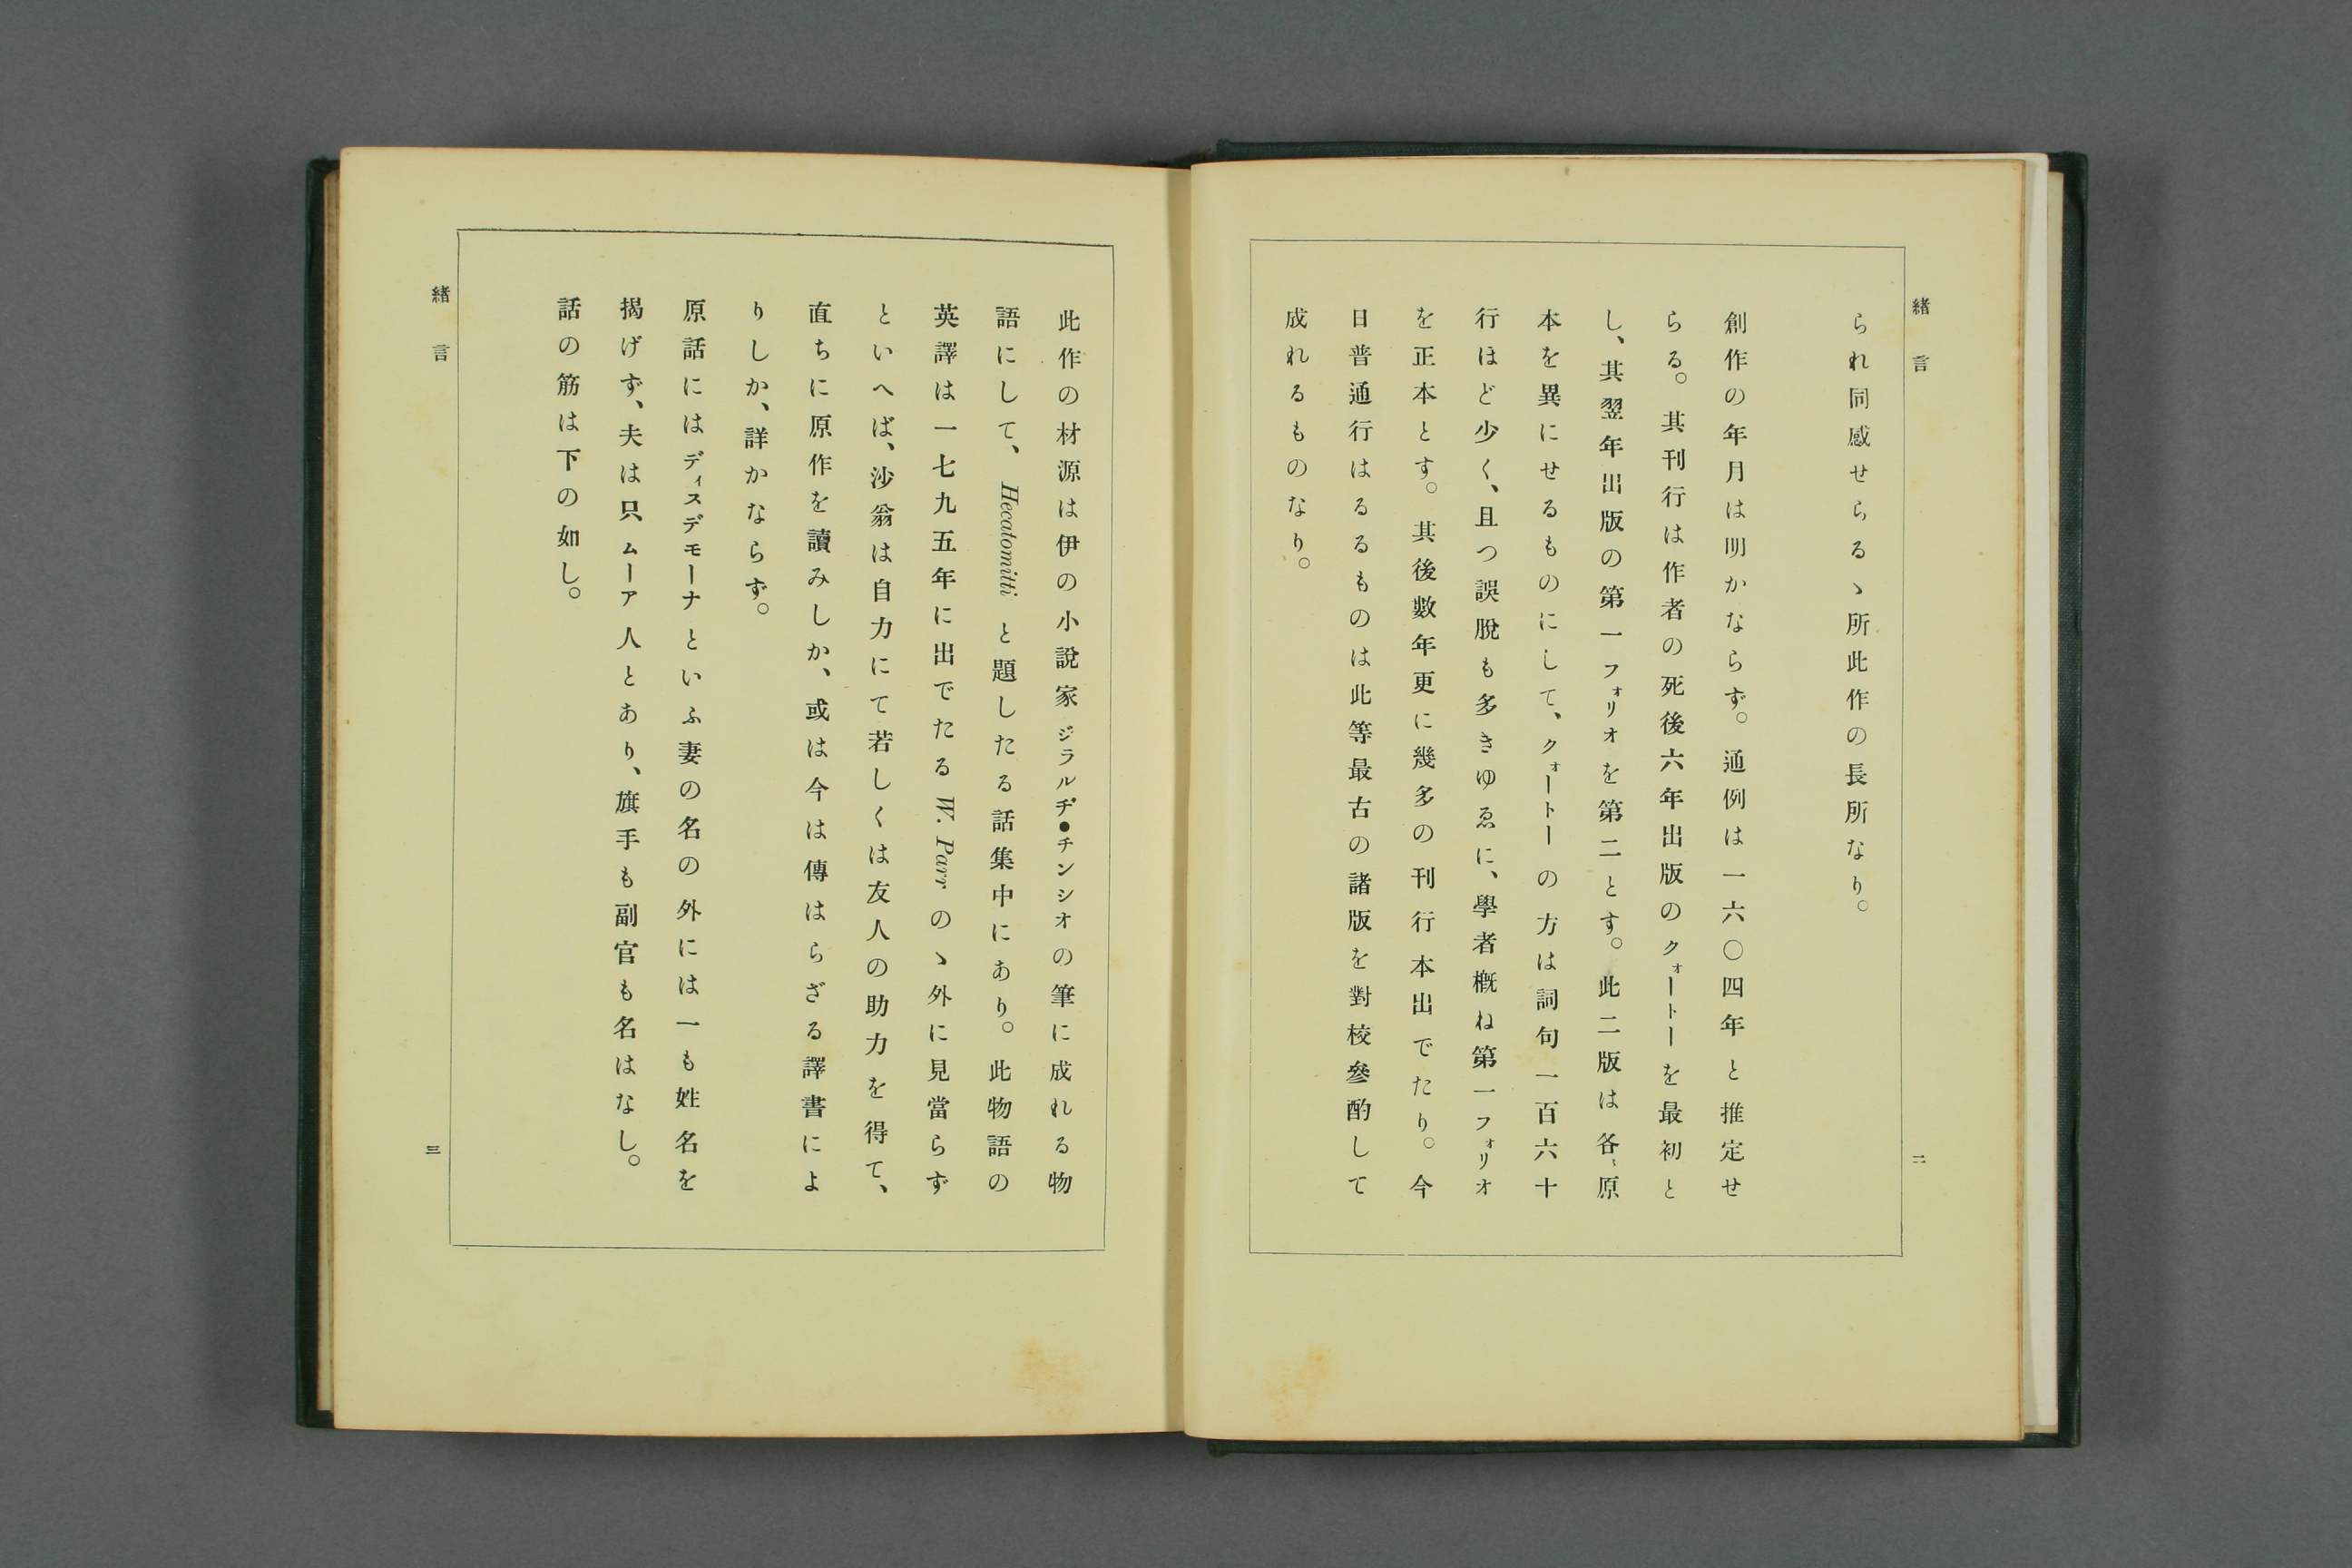 緒言
二
られ同感せらるゝ所此作の長所なり。
創作の年月は明かならず。通例は一六〇四年と推定せ
らる。其刊行は作者の死後六年出版のクォートーを最初と
し、其翌年出版の第一フォリオを第二とす。此二版は各〻原
本を異にせるものにして、クォートーの方は詞句一百六十
行ほど少く、且つ誤脫も多きゆゑに、學者槪ね第一フォリオ
を正本とす。其後數年更に幾多の刊行本出でたり。今
日普通行はるるものは此等最古の諸版を對校參酌して
成れるものなり。
此作の材源は伊の小說家ジラルヂ●チンシオの筆に成れる物
語にして、Hecatomitti と題したる話集中にあり。此物語の
英譯は一七九五年に出でたる W. Parr のゝ外に見當らず
といへば、沙翁は自力にて若しくは友人の助力を得て、
直ちに原作を讀みしか、或は今は傳はらざる譯書によ
りしか、詳かならず。
原話にはディスデモーナといふ妻の名の外には一も姓名を
揭げず、夫は只ムーア人とあり、旗手も副官も名はなし。
話の筋は下の如し。
緒言
三